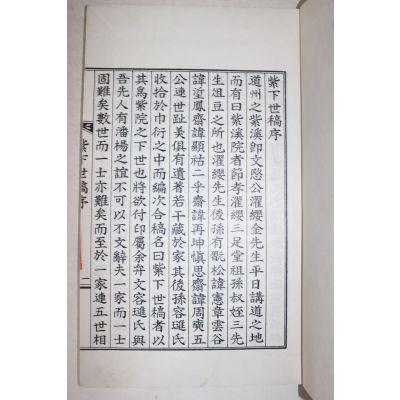 紫下世稿序
道州之紫溪卽文愍公濯纓金先生平日講道之地
而有曰紫溪院者節孝濯纓三足堂祖孫叔姪三先
生俎豆之所也濯纓先生後孫有翫松諱憲章雲谷
諱湟鳳齋諱顯祜二乎齋諱再坤愼思齋諱周奭五
公連世趾美俱有遺著若干藏於家其後孫容璡氏
收拾於巾衍之中而編次合稿名曰紫下世稿者以
其爲紫院之下世也將欲付印屬余弁文容璡氏與
吾先人有潘楊之誼不可以不文辭夫一家而一士
固難矣數世而一士亦難矣而至於一家連五世相
紫下世稿序